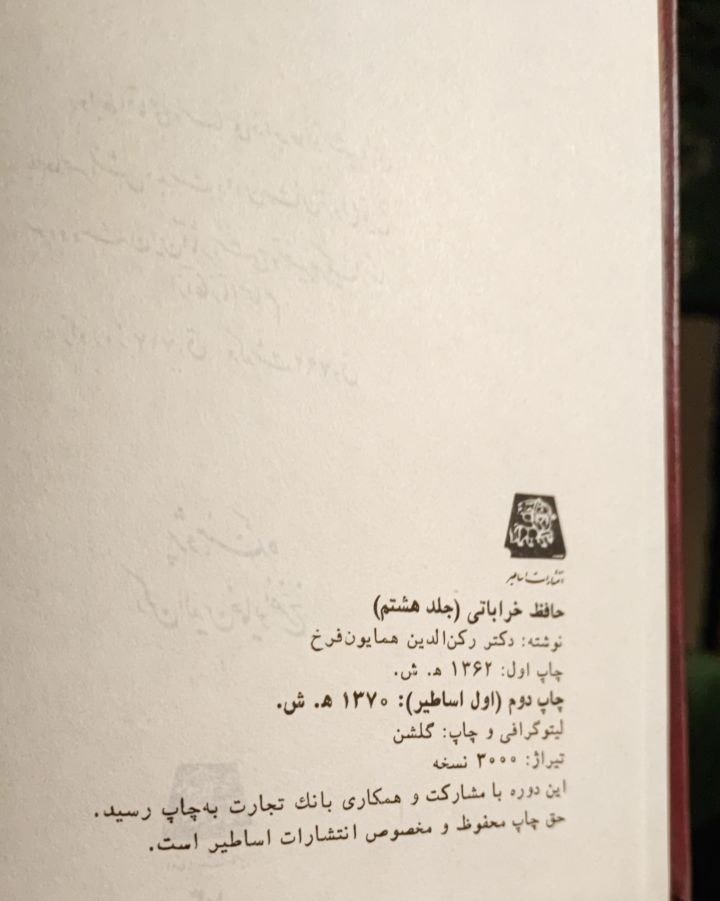 انتشارات اساطیر
حافظ خراباتی (جلد هشتم)
نوشته: دکتر رکن‌الدین همایون‌فرخ
چاپ اول: ۱۳۶۲ ه‍. ش.
چاپ دوم (اول اساطیر): ۱۳۷۰ ه‍. ش.
لیتوگرافی و چاپ: گلشن
تیراژ: ۳۰۰۰ نسخه
این دوره با مشارکت و همکاری بانك تجارت به‌چاپ رسید.
حق چاپ محفوظ و مخصوص انتشارات اساطیر است.